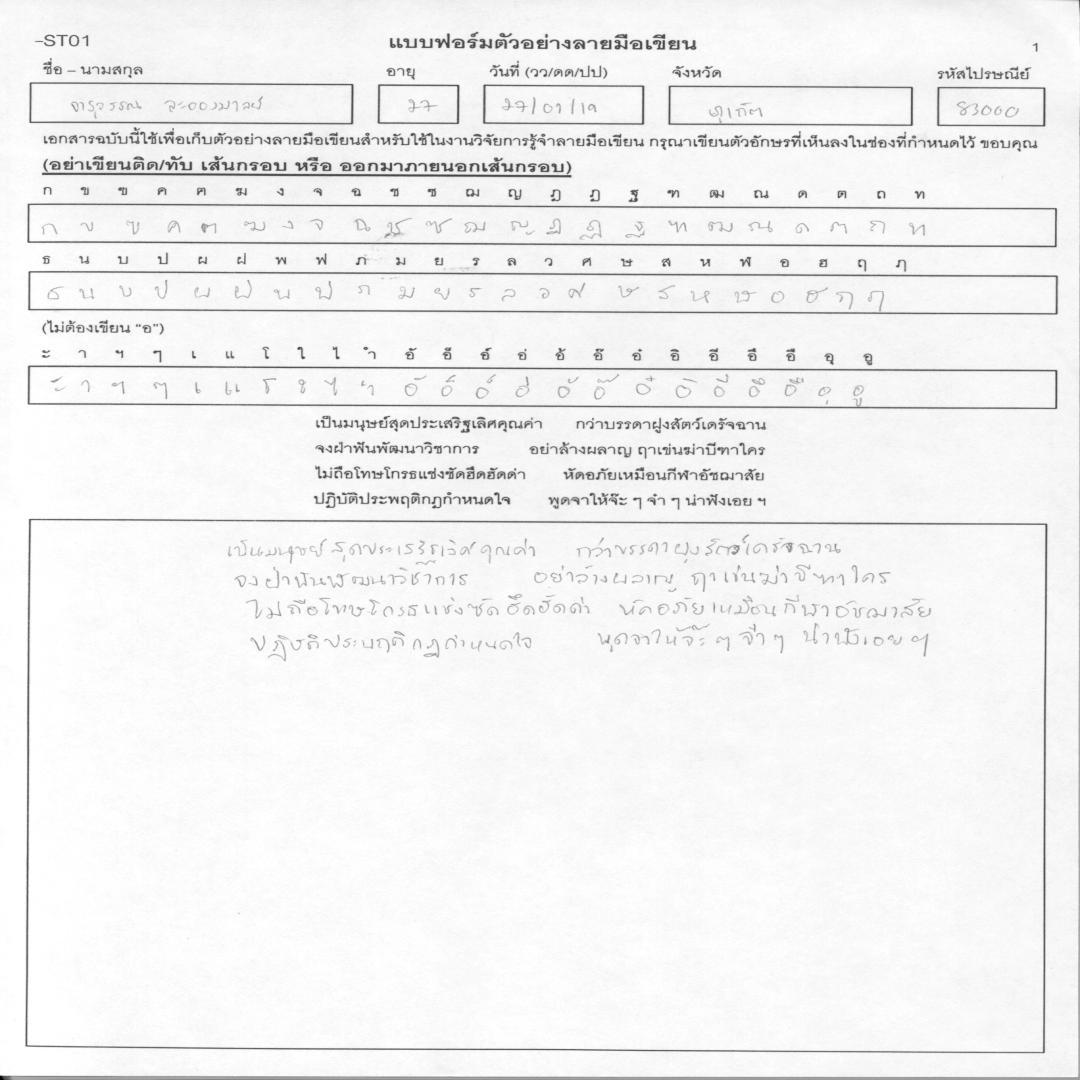 -ST01 แบบฟอร์มตัวอย่างลายมือเขียน 1
ชื่อ – นามสกุล อายุ วันที่ (วว/ดด/ปป) จังหวัด รหัสไปรษณีย์
จารุวรรณ ละอองมาลย์ 27 27/01/19 ภูเก็ต 83000
เอกสารฉบับนี้ใช้เพื่อเก็บตัวอย่างลายมือเขียนสำหรับใช้ในงานวิจัยการรู้จำลายมือเขียน กรุณาเขียนตัวอักษรที่เห็นลงในช่องที่กำหนดไว้ ขอบคุณ
(อย่าเขียนติด/ทับ เส้นกรอบ หรือ ออกมาภายนอกเส้นกรอบ)
ก ข ฃ ค ฅ ฆ ง จ ฉ ช ซ ฌ ญ ฎ ฏ ฐ ฑ ฒ ณ ด ต ถ ท
ก ข ฃ ค ฅ ฆ ง จ ฉ ช ซ ฌ ญ ฎ ฏ ฐ ฑ ฒ ณ ด ต ถ ท
ธ น บ ป ผ ฝ พ ฟ ภ ม ย ร ล ว ศ ษ ส ห ฬ อ ฮ ฤ ฦ
ธ น บ ป ผ ฝ พ ฟ ภ ม ย ร ล ว ศ ษ ส ห ฬ อ ฮ ฤ ฦ
(ไม่ต้องเขียน “อ”)
ะ า ฯ ๆ เ แ โ ใ ไ ำ อั อ็ อ์ อ่ อ้ อ๊ อ๋ อิ อี อึ อื อุ อู
ะ า ฯ ๆ เ แ โ ใ ไ ำ อั อ็ อ์ อ่ อ้ อ๊ อ๋ อิ อี อึ อื อุ อู
เป็นมนุษย์สุดประเสริฐเลิศคุณค่า กว่าบรรดาฝูงสัตว์เดรัจฉาน
จงฝ่าฟันพัฒนาวิชาการ อย่าล้างผลาญ ฤาเข่นฆ่าบีฑาใคร
ไม่ถือโทษโกรธแช่งซัดฮึดฮัดด่า หัดอภัยเหมือนกีฬาอัชฌาสัย
ปฏิบัติประพฤติกฎกำหนดใจ พูดจาให้จ๊ะ ๆ จ๋า ๆ น่าฟังเอย ฯ
เป็นมนุษย์สุดประเสริฐเลิศคุณค่า กว่าบรรดาฝูงสัตว์เดรัจฉาน
จงฝ่าฟันพัฒนาวิชาการ อย่าล้างผลาญ ฤาเข่นฆ่าบีฑาใคร
ไม่ถือโทษโกรธแช่งซัดฮึดฮัดด่า หัดอภัยเหมือนกีฬาอัชฌาสัย
ปฏิบัติประพฤติกฎกำหนดใจ พูดจาให้จ๊ะ ๆ จ๋า ๆ น่าฟังเอย ฯ